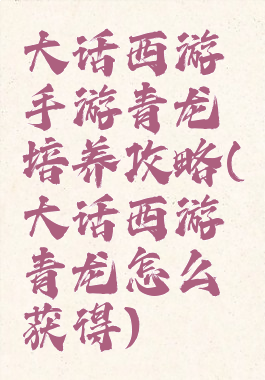 大话西游
手游青龙
培养攻略(
大话西游
青龙怎么
获得)